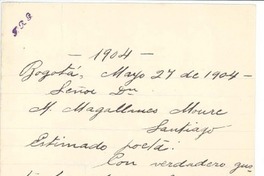 - 1904 -
Bogotá, Mayo 27 de 1904 -
Señor Dn
M. Magallanes Moure
Santiago
Estimado poeta:
Con verdadero gus-